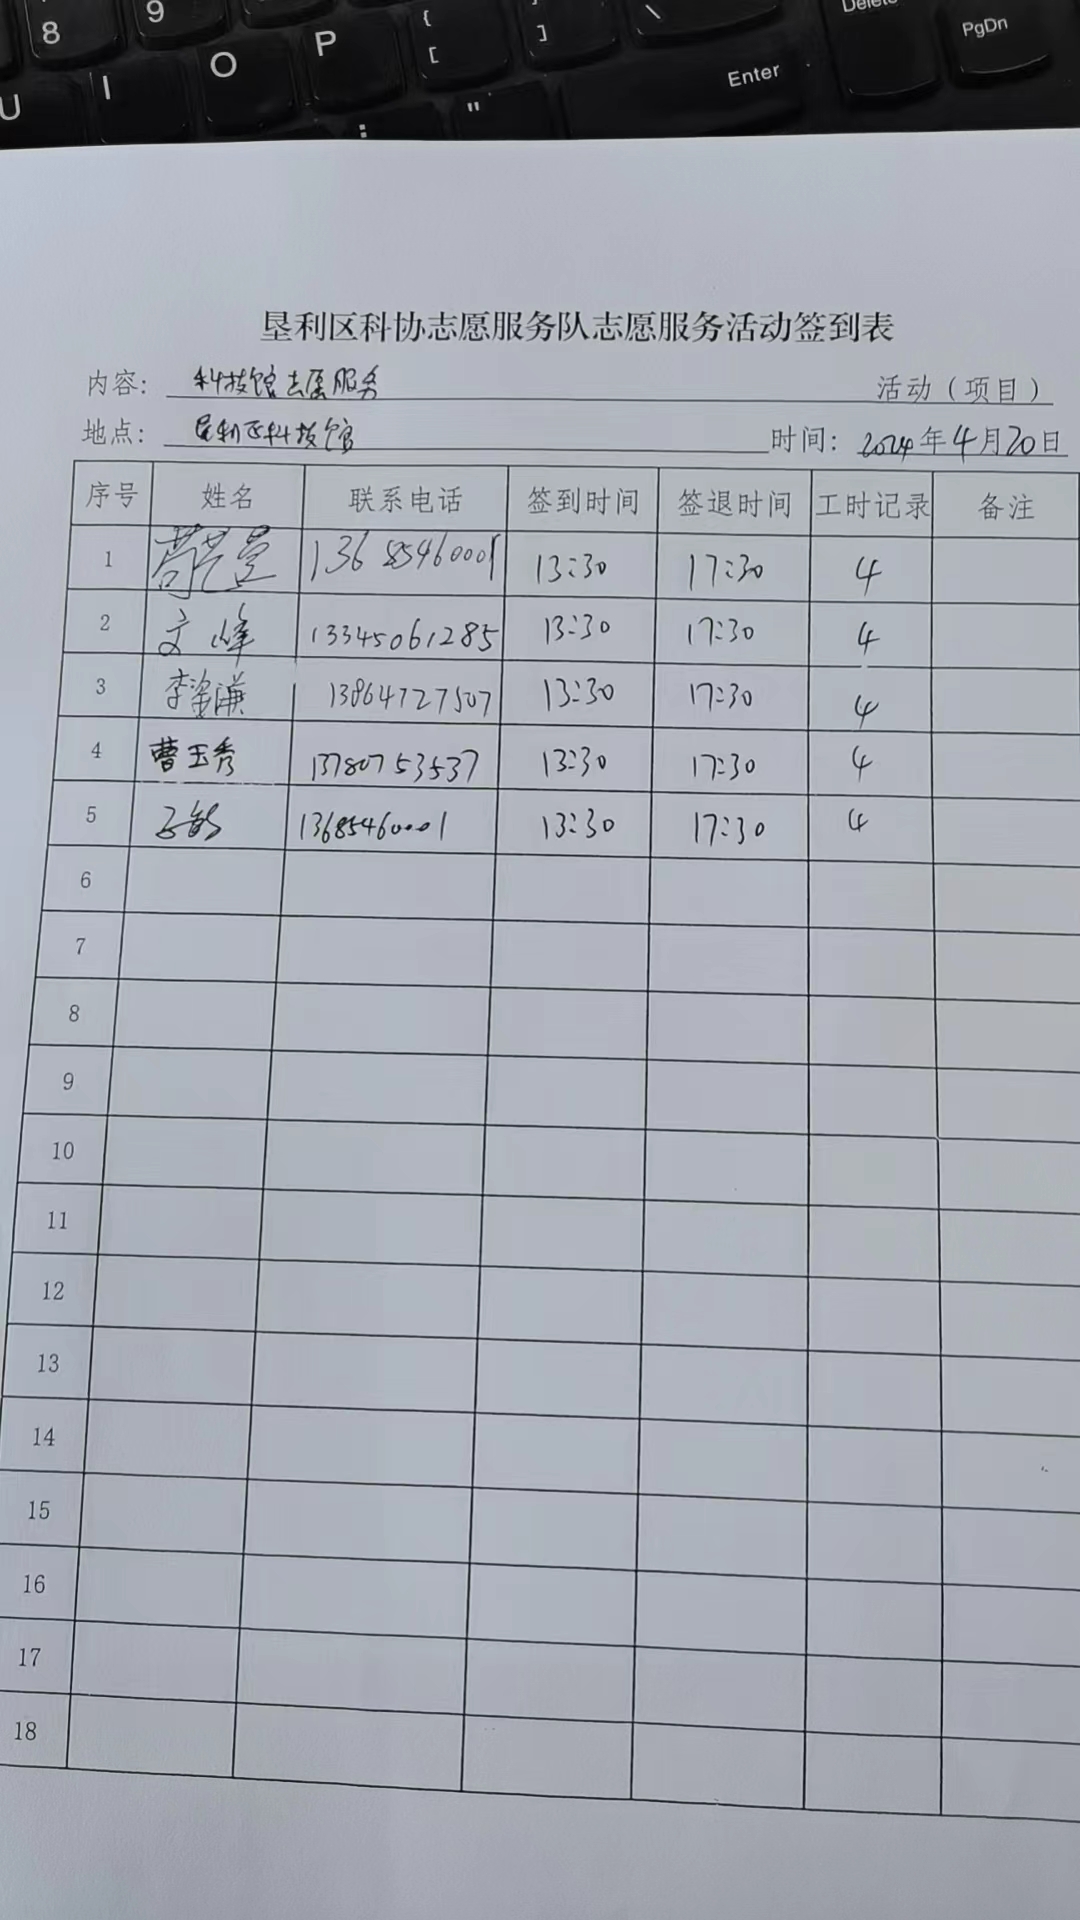 8 9 { [ ] \ Delete PgDn
U I O P : " Enter
垦利区科协志愿服务队志愿服务活动签到表
内容: 科技馆志愿服务 活动（项目）
地点: 垦利区科技馆 时间: 2024年4月20日
序号 姓名 联系电话 签到时间 签退时间 工时记录 备注
1 13685460001 13:30 17:30 4
2 文峰 13345061285 13:30 17:30 4
3 李谦 13864727507 13:30 17:30 4
4 曹玉秀 13780753537 13:30 17:30 4
5 13685460001 13:30 17:30 4
6
7
8
9
10
11
12
13
14
15
16
17
18